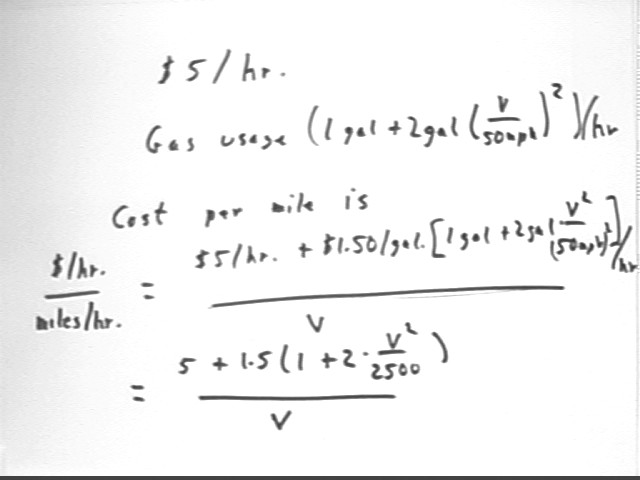 $5/hr.
Gas usage (1 gal + 2gal (V/50mph)^2)/hr
Cost per mile is
$/hr. / miles/hr. = $5/hr. + $1.50/gal. [1 gal + 2gal V^2/(50mph)^2]/hr / V
= 5 + 1.5(1 + 2 · V^2/2500) / V